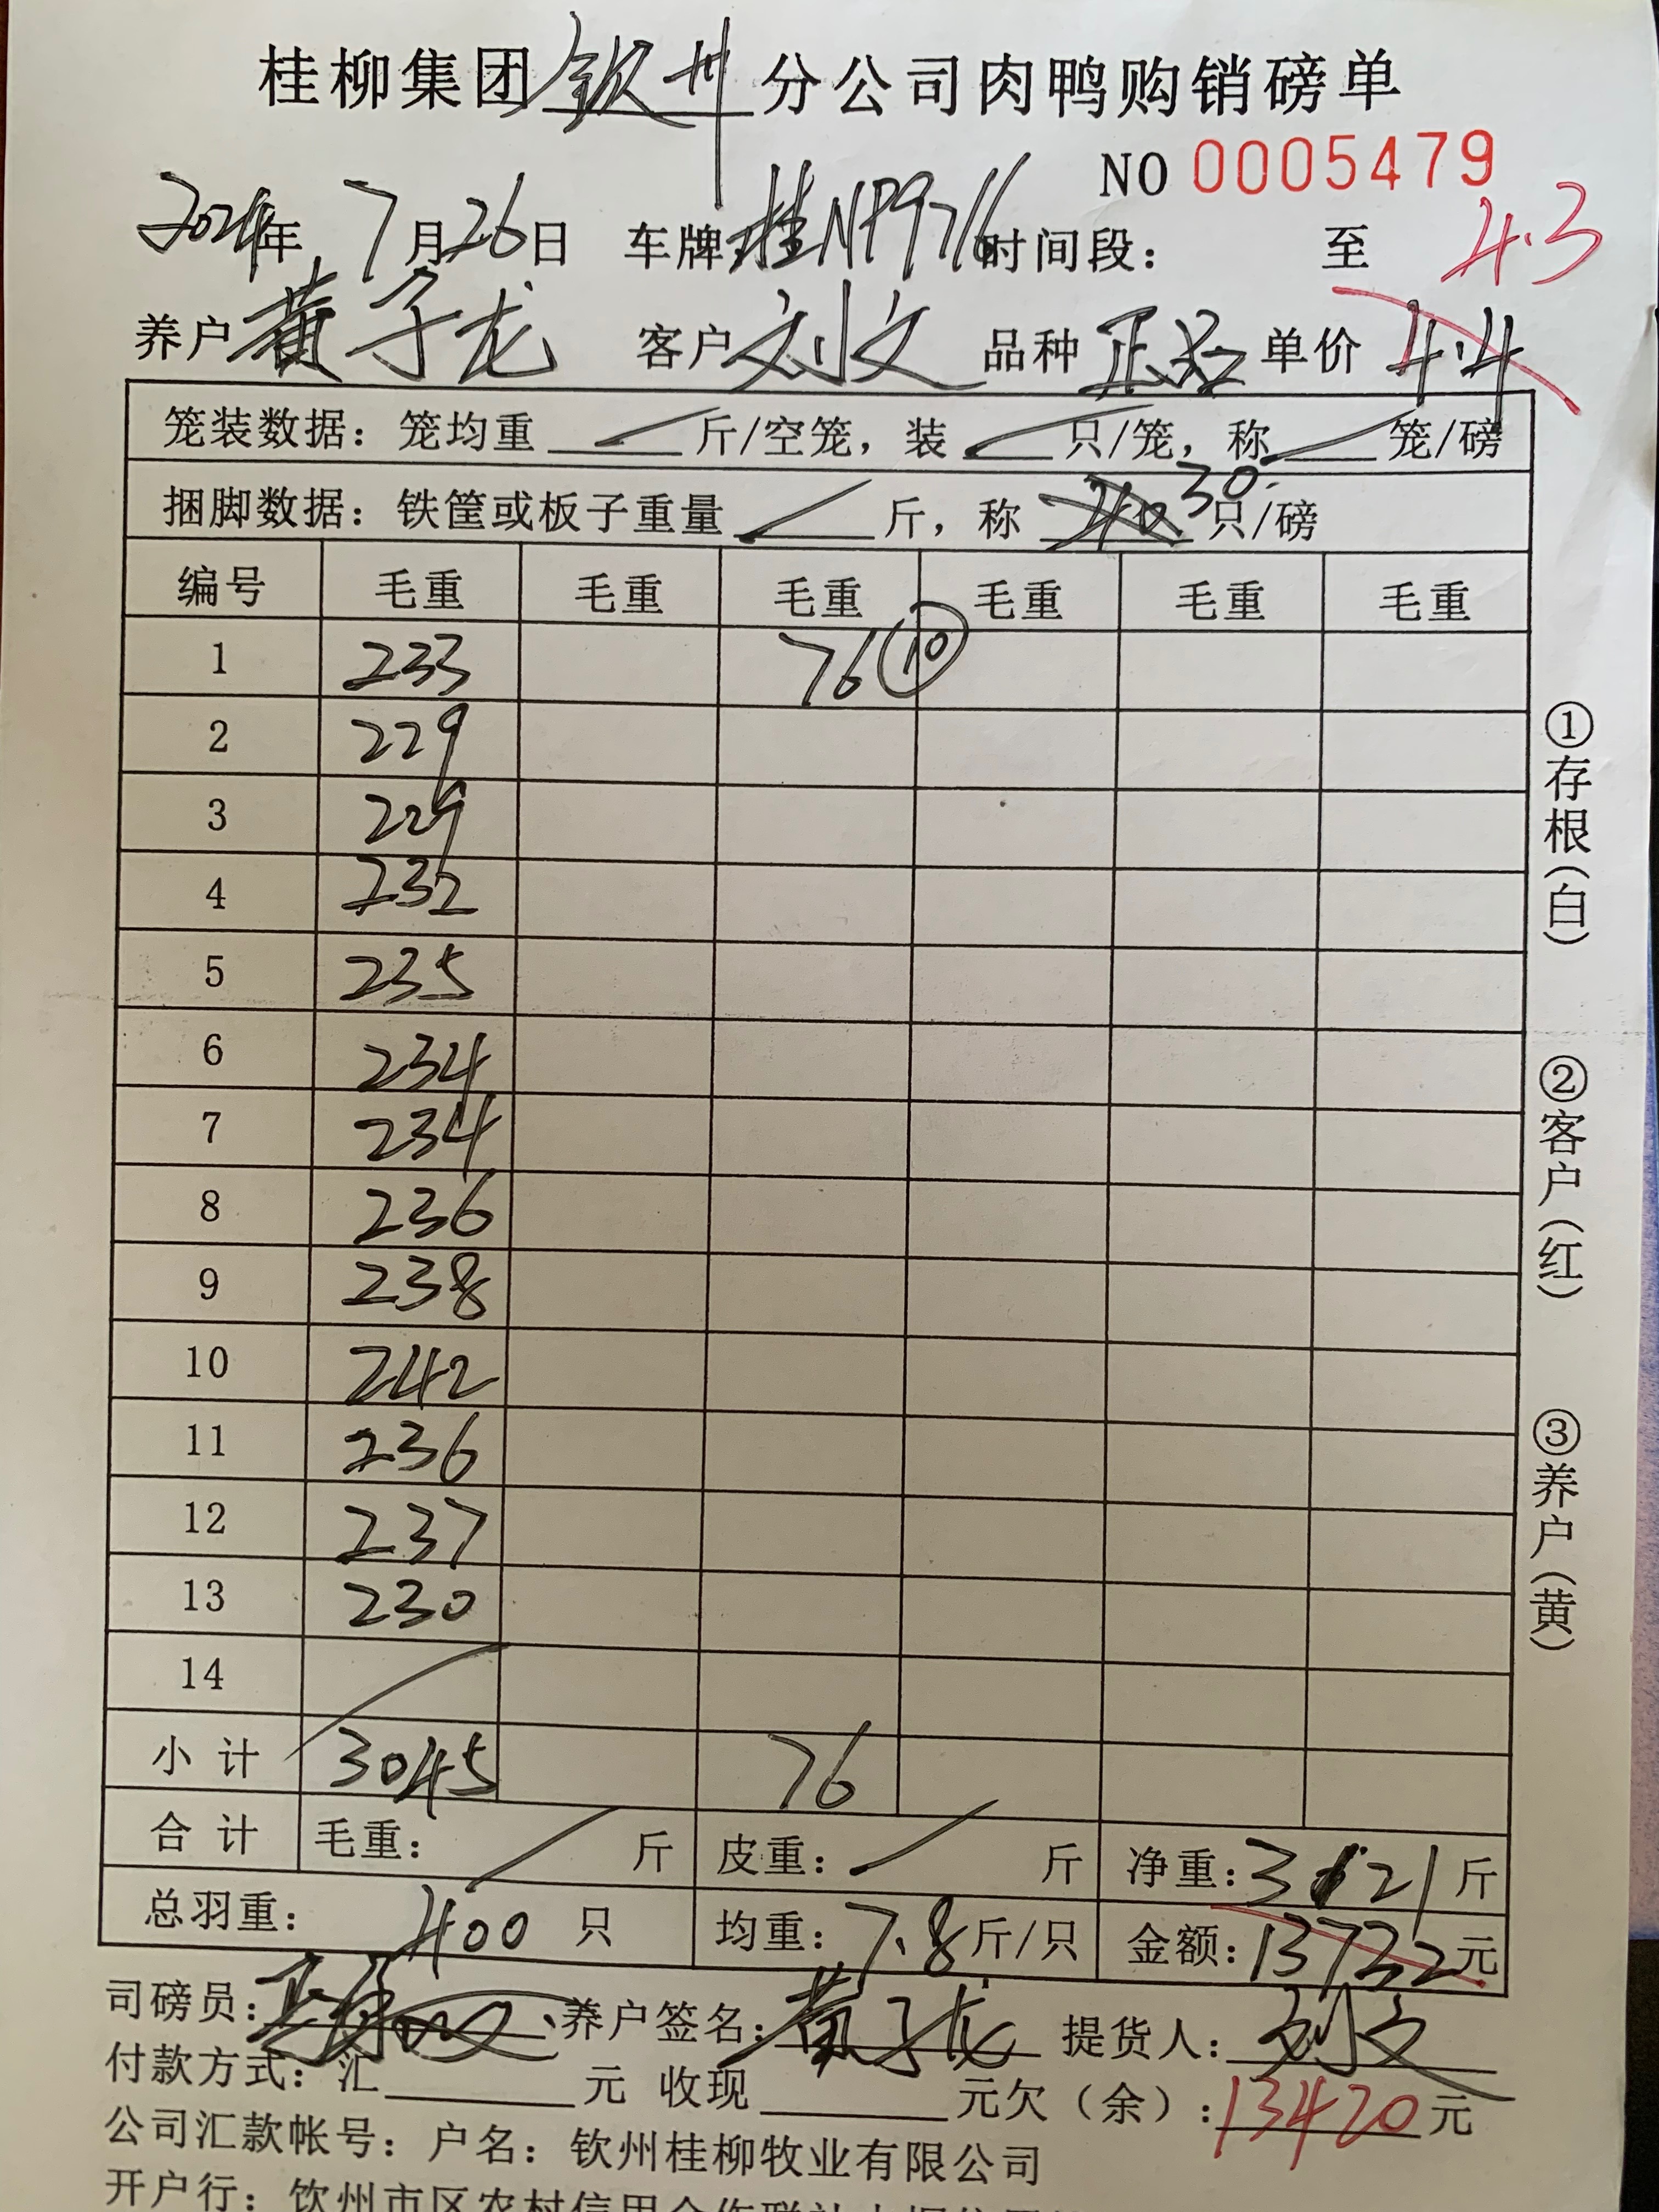 桂柳集团钦州分公司肉鸭购销磅单
NO 0005479
2024年7月26日 车牌桂NP9716时间段: 至 4.3
养户黄子龙 客户刘文 品种 单价 4.4
笼装数据:笼均重 斤/空笼,装 只/笼,称 笼/磅
捆脚数据:铁筐或板子重量 斤,称 30 只/磅
编号 毛重 毛重 毛重 毛重 毛重 毛重
1 233 76 ⑩
2 229
3 229
4 232
5 235
6 234
7 234
8 236
9 238
10 242
11 236
12 237
13 230
14
小计 3045 76
合计 毛重: 斤 皮重: 斤 净重:3121斤
总羽重: 400 只 均重:7.8斤/只 金额:13732元
司磅员: 养户签名:黄子龙 提货人:刘文
付款方式:汇 元 收现 元欠(余):13420元
公司汇款帐号:户名:钦州桂柳牧业有限公司
开户行:钦州市区农村信用合作联社
①存根(白)
②客户(红)
③养户(黄)